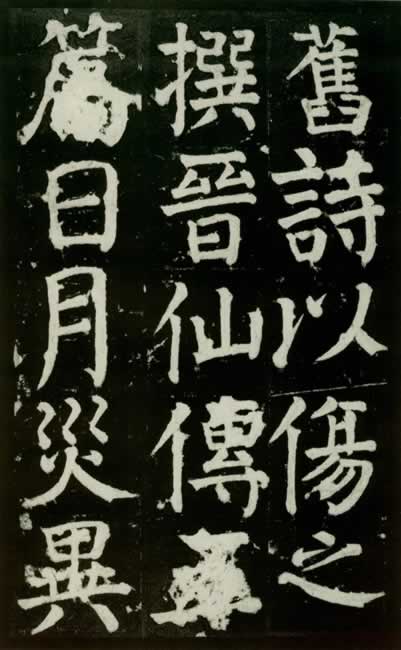 舊詩以傷之
撰晉仙傳五
篇日月災異